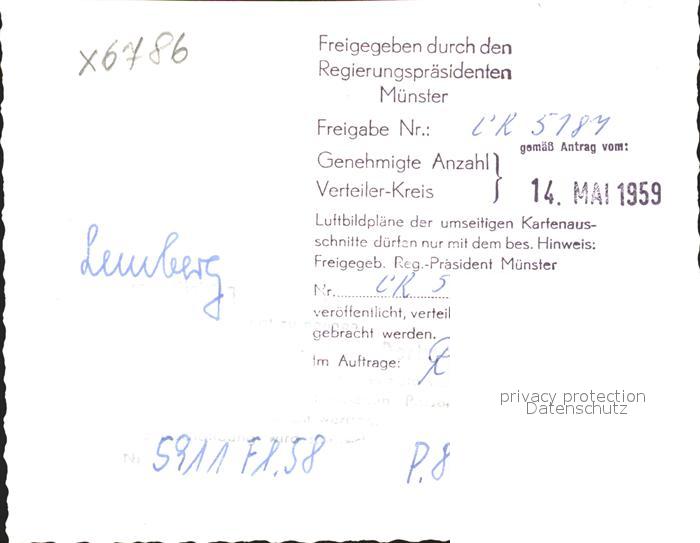 x6786
Freigegeben durch den
Regierungspräsidenten
Münster
Freigabe Nr.: CR 5184
gemäß Antrag vom:
Genehmigte Anzahl }
Verteiler-Kreis
14. MAI 1959
Luftbildpläne der umseitigen Kartenaus-
schnitte dürfen nur mit dem bes. Hinweis:
Freigegeb. Reg.-Präsident Münster
Lemberg
Nr. CR 5
veröffentlicht, verteil
gebracht werden.
Im Auftrage:
privacy protection
Datenschutz
5911 Fl.58 P.8